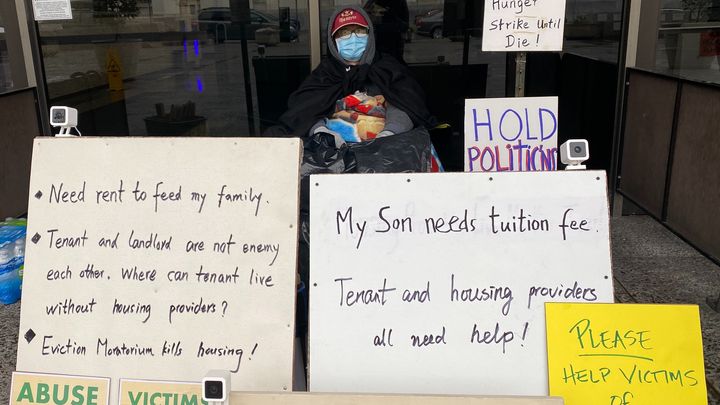 Hunger
Strike Until
Die!
HOLD
POLITICIANS
Need rent to feed my family.
Tenant and landlord are not enemy
each other. Where can tenant live
without housing providers?
Eviction Moratorium kills housing!
My Son needs tuition fee.
Tenant and housing providers
all need help!
PLEASE
HELP VICTIMS
OF
ABUSE
VICTIMS